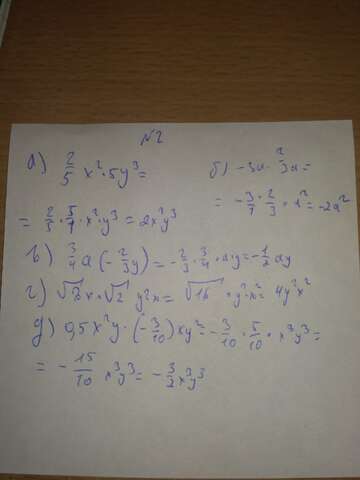 №2
а) 2/5 x²·5y³=
= 2/5·5/1·x²·y³=2x²y³
б) -3a·2/3a=
= -3/1·2/3·a²=-2a²
в) 3/4 a(-2/3y)=-2/3·3/4·ay=-1/2ay
г) √8x·√2 y²x=√16·y²·x²=4y²x²
д) 0,5x²y·(-3/10)xy²=-3/10·5/10·x³y³=
= -15/10 x³y³=-3/2x³y³